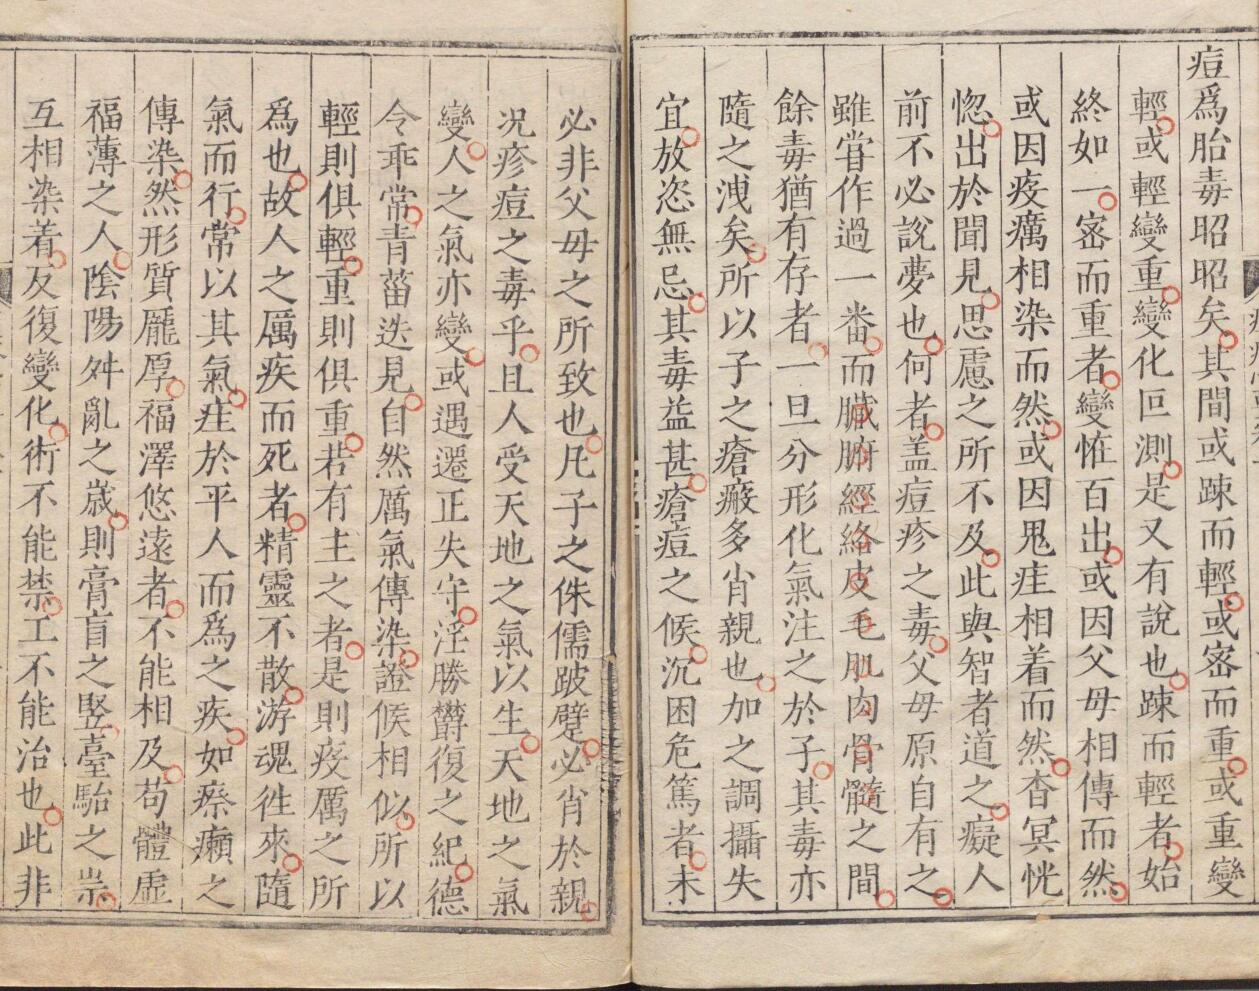 痘爲胎毒昭昭矣其間或踈而輕或宻而重或重變
輕或輕變重變化叵測是又有說也踈而輕者始
終如一宻而重者變恠百出或因父母相傳而然
或因疫癘相染而然或因鬼疰相着而然杳冥恍
惚出於聞見思慮之所不及此與智者道之癡人
前不必說夢也何者盖痘疹之毒父母原自有之
雖甞作過一番而臟腑經絡皮毛肌肉骨髓之間
餘毒猶有存者一旦分形化氣注之於子其毒亦
隨之洩矣所以子之瘡瘢多肖親也加之調攝失
宜放恣無忌其毒益甚瘡痘之候沉困危篤者未
必非父母之所致也凡子之侏儒跛躄必肖於親
况疹痘之毒乎且人受天地之氣以生天地之氣
變人之氣亦變或遇遷正失守淫勝欝復之紀德
令乖常青菑迭見自然厲氣傳染證候相似所以
輕則俱輕重則俱重若有主之者是則疫厲之所
爲也故人之厲疾而死者精靈不散游魂徃來隨
氣而行常以其氣疰於平人而爲之疾如瘵癩之
傳染然形質厖厚福澤悠遠者不能相及苟體虛
福薄之人陰陽舛亂之歲則膏肓之竪臺駘之祟
互相染着反復變化術不能禁工不能治也此非